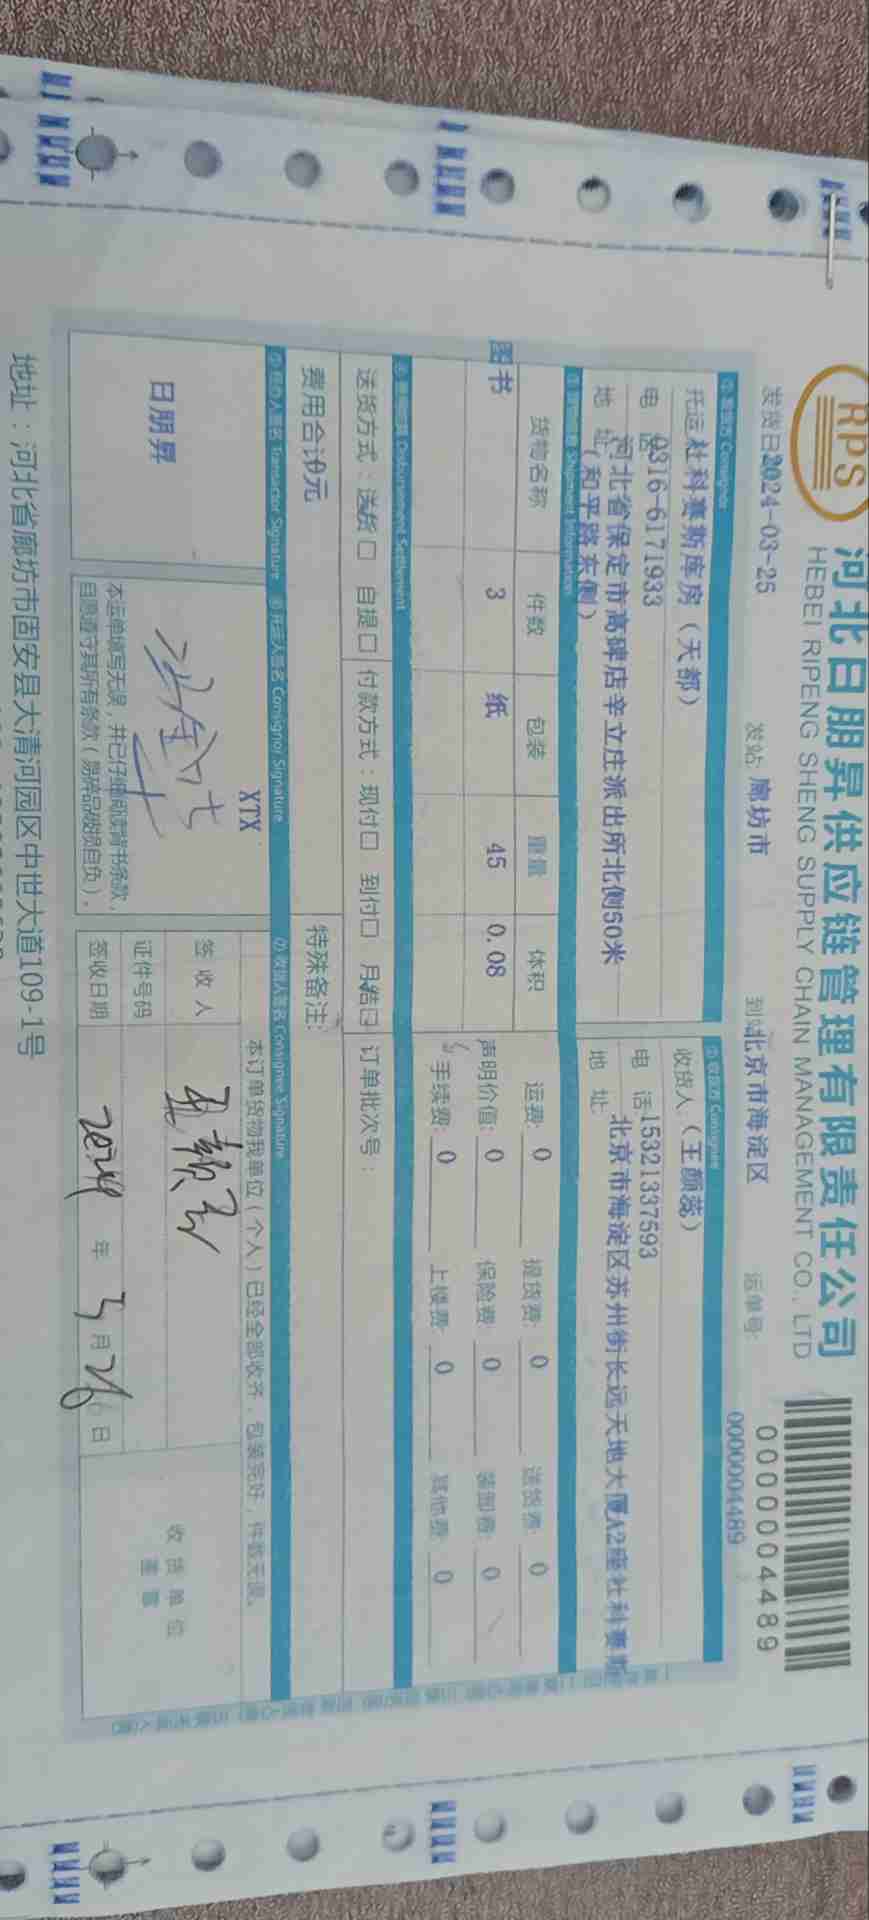 RPS
河北日朋昇供应链管理有限责任公司
HEBEI RIPENG SHENG SUPPLY CHAIN MANAGEMENT CO., LTD
0000004489
发货日 2024-03-25 发站: 廊坊市 到站 北京市海淀区 运单号: 0000004489
① 发货方 Consignor ② 收货方 Consignee
托运 社科赛斯库房（天都） 收货人（王颜蕊）
电 话 0316-6171933 电 话 15321337593
地 址 河北省保定市高碑店辛立庄派出所北侧50米（和平路东侧） 地 址: 北京市海淀区苏州街长远天地大厦A2座社科赛斯
③ Shipment Information
货物名称 件数 包装 重量 体积 运费: 0 提货费: 0 送货费: 0
图书 3 纸 45 0.08 声明价值: 0 保险费: 0 装卸费: 0
手续费: 0 上楼费: 0 其他费: 0
④ Disbursement Settlement
送货方式：送货 自提 付款方式：现付 到付 月结 订单批次号：
费用合计 0元 特殊备注:
⑤ 经办人签名 Transactor Signature ⑥ 托运人签名 Consignor Signature ⑦ 收货人签名 Consignee Signature
XTX 本订单货物我单位（个人）已经全部收齐，包装完好，件数无误。
日朋昇 签 收 人 收货单位
证件号码 盖章
本运单填写无误，并已仔细阅读背书条款，
自愿遵守其所有条款（易碎品破损自负）。 签收日期 2024 年 3 月 26 日
地址：河北省廊坊市固安县大清河园区中世大道109-1号